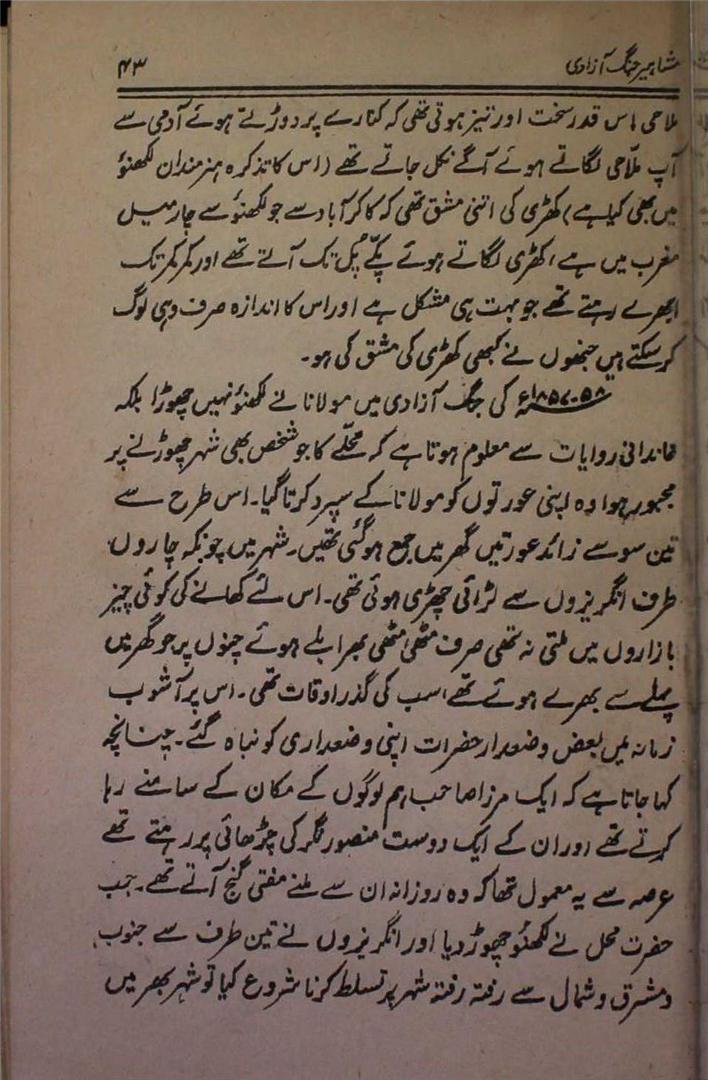 مشاہیر جنگ آزادی
۴۳
ملاحی اس قدر سخت اور تیز ہوتی تھی کہ کنارے پر دوڑتے ہوئے آدمی سے
آپ ملّاحی لگاتے ہوئے آگے نکل جاتے تھے (اس کا تذکرہ ہنرمندان لکھنؤ
میں بھی کیا ہے) کھڑی کی اتنی مشق تھی کہ کاکرآباد سے جو لکھنؤ سے چار میل
مغرب میں ہے، کھڑی لگاتے ہوئے پکّے پُل تک آتے تھے اور کمر کمر تک
ابھرے رہتے تھے جو بہت ہی مشکل ہے اور اس کا اندازہ صرف وہی لوگ
کر سکتے ہیں جنھوں نے کبھی کھڑی کی مشق کی ہو۔
۵۸-۱۸۵۷ء کی جنگ آزادی میں مولانا نے لکھنؤ نہیں چھوڑا بلکہ
خاندانی روایات سے معلوم ہوتا ہے کہ محلّے کا جو شخص بھی شہر چھوڑنے پر
مجبور ہوا وہ اپنی عورتوں کو مولانا کے سپرد کرتا گیا۔ اس طرح سے
تین سو سے زائد عورتیں گھر میں جمع ہوگئی تھیں۔ شہر میں چونکہ چاروں
طرف انگریزوں سے لڑائی چھڑی ہوئی تھی۔ اس لئے کھانے کی کوئی چیز
بازاروں میں ملتی نہ تھی صرف مٹھی مٹھی بھر ابلے ہوئے چنوں پر جو گھر میں
پہلے سے بھرے ہوئے تھے، سب کی گذر اوقات تھی۔ اس پر آشوب
زمانہ میں بعض وضعدار حضرات اپنی وضعداری کو نباہ گئے۔ چنانچہ
کہا جاتا ہے کہ ایک مرزا صاحب ہم لوگوں کے مکان کے سامنے رہا
کرتے تھے اور ان کے ایک دوست منصور نگر کی چڑھائی پر رہتے تھے
عرصہ سے یہ معمول تھا کہ وہ روزانہ ان سے ملنے مفتی گنج آتے تھے۔ جب
حضرت محل نے لکھنؤ چھوڑ دیا اور انگریزوں نے تین طرف سے جنوب
و مشرق و شمال سے رفتہ رفتہ شہر پر تسلط کرنا شروع کیا تو شہر بھر میں